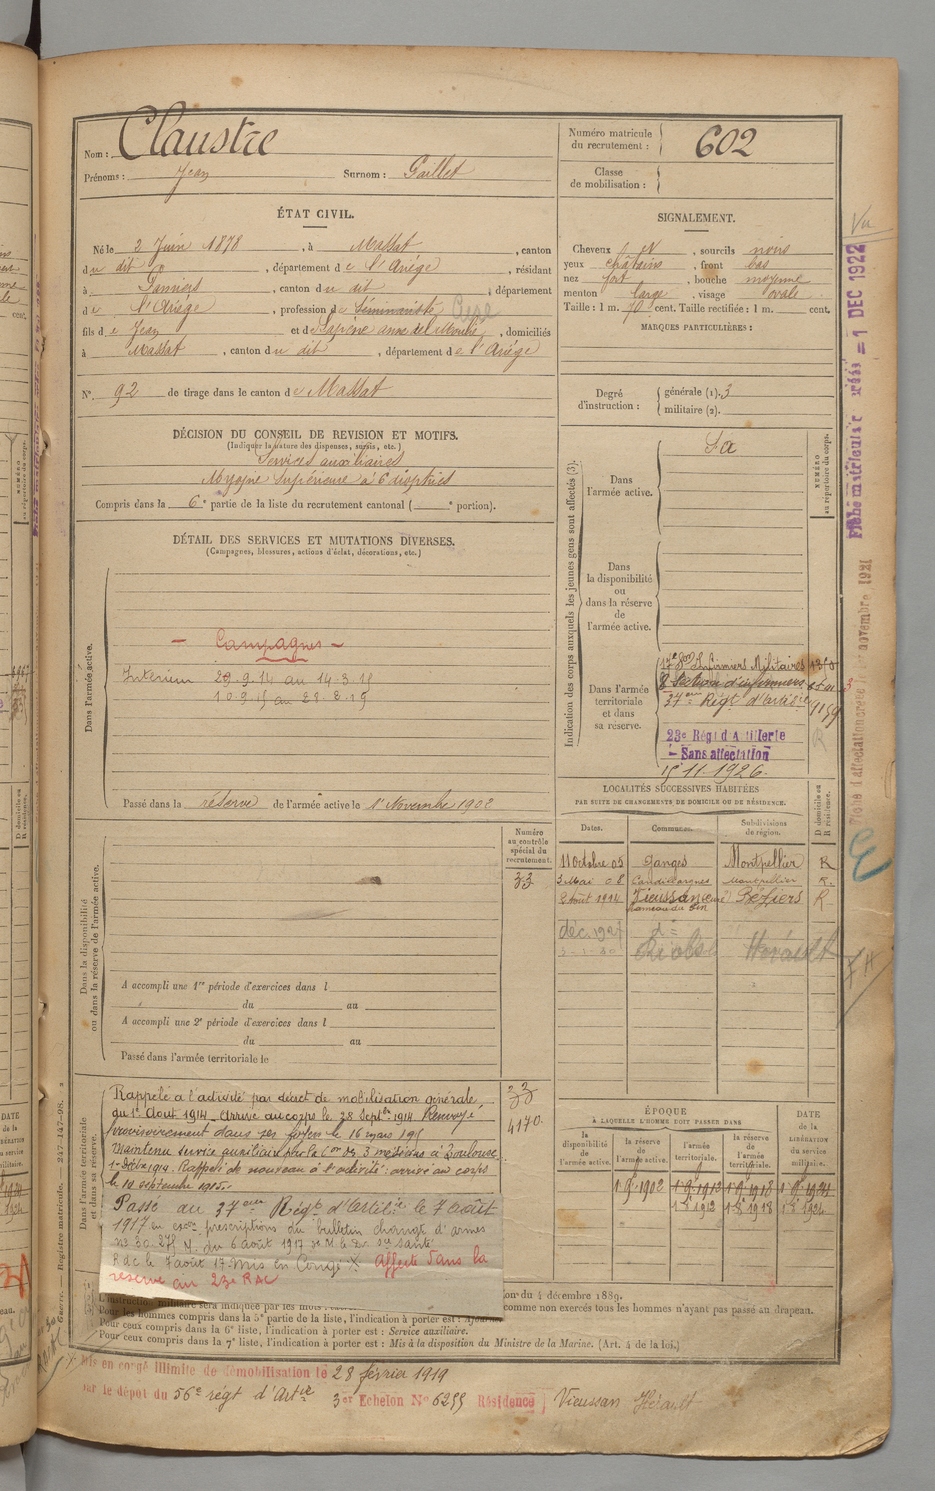 Nom : Claustre
Prénoms : Jean Surnom : Gaillet
Numéro matricule du recrutement : 602
Classe de mobilisation :
ÉTAT CIVIL.
Né le 2 Juin 1878, à Massat, canton
du dit, département de l'Ariége, résidant
à Pamiers, canton du dit, département
de l'Ariége, profession de Séminariste
fils de Jean et de, domiciliés
à Massat, canton du dit, département de l'Ariége
N° 92 de tirage dans le canton de Massat
SIGNALEMENT.
Cheveux, sourcils noirs
yeux châtains, front bas
nez fort, bouche moyenne
menton large, visage ovale
Taille : 1 m. 70 cent. Taille rectifiée : 1 m. cent.
MARQUES PARTICULIÈRES :
Degré d'instruction : générale (1). 3
militaire (2).
DÉCISION DU CONSEIL DE REVISION ET MOTIFS.
(Indiquer la nature des dispenses, sursis, etc.)
Services auxiliaires
Myopie Supérieure à 6 dioptries
Compris dans la 6e partie de la liste du recrutement cantonal ( e portion).
DÉTAIL DES SERVICES ET MUTATIONS DIVERSES.
(Campagnes, blessures, actions d'éclat, décorations, etc.)
Dans l'armée active.
- Campagnes -
Intérieur 29.9.14 au 14.3.15
10.9.15 au 28.2.19
Passé dans la réserve de l'armée active le 1er Novembre 1902
Indication des corps auxquels les jeunes gens sont affectés (3).
NUMÉRO au répertoire du corps.
Dans l'armée active.
S a
Dans la disponibilité ou dans la réserve de l'armée active.
Dans l'armée territoriale et dans sa réserve.
17e Son Infirmiers Militaires
Section d'infirmiers
37eme Régt d'artie
9159
23e Régt d'Artillerie
- Sans affectation
15 11.1926.
LOCALITÉS SUCCESSIVES HABITÉES
PAR SUITE DE CHANGEMENTS DE DOMICILE OU DE RÉSIDENCE.
Dates. Communes. Subdivisions de région. D domicile ou R résidence.
11 Octobre 05 Ganges Montpellier R
3 Mai 08 Candillargues Montpellier R.
2 Août 1914 Vieussan Béziers R
dec. 192 do
Hérault
Dans la disponibilité ou dans la réserve de l'armée active.
Numéro au contrôle spécial du recrutement.
33
A accompli une 1re période d'exercices dans l
du au
A accompli une 2e période d'exercices dans l
du au
Passé dans l'armée territoriale le
Dans l'armée territoriale et dans sa réserve.
Rappelé à l'activité par décret de mobilisation générale
du 1er Aout 1914. Arrivé au corps le 28 Septbre 1914. Renvoyé
provisoirement dans ses foyers le 16 mars 1915
Maintenu service auxiliaire par la Con de 3 médecins à Toulouse.
1er Déc 1914. Rappelé de nouveau à l'activité : arrivé au corps
le 10 septembre 1915.
33
4170.
Passé au 37eme Régt d'Artilie le 7 août
1917 en prescriptions du bulletin changt d'armes
no 30.275 du 6 août 1917 de M. le Dr Sce Santé
R de le 7 août 17. Mis en Congé X. Affecté dans la
réserve au 23e RAC
ÉPOQUE
À LAQUELLE L'HOMME DOIT PASSER DANS
la disponibilité de l'armée active. la réserve de l'armée active. l'armée territoriale. la réserve de l'armée territoriale.
DATE de la LIBÉRATION du service militaire.
1.9.1902 1.9.1912 1.9.1918 1.9.1924
1.8.1912 1.8.1918 1.8.1924
du 4 décembre 1889.
L'instruction militaire sera indiquée par les mots :
comme non exercés tous les hommes n'ayant pas passé au drapeau.
Pour les hommes compris dans la 5e partie de la liste, l'indication à porter est :
Pour ceux compris dans la 6e liste, l'indication à porter est : Service auxiliaire.
Pour ceux compris dans la 7e liste, l'indication à porter est : Mis à la disposition du Ministre de la Marine. (Art. 4 de la loi.)
Mis en congé illimité de démobilisation le 28 février 1919
par le dépot du 56e régt d'Artie 3er Echelon No 6255 Résidence Vieussan Hérault
Fiche matriculaire 1 DEC 1922
novembre 1921
Vu